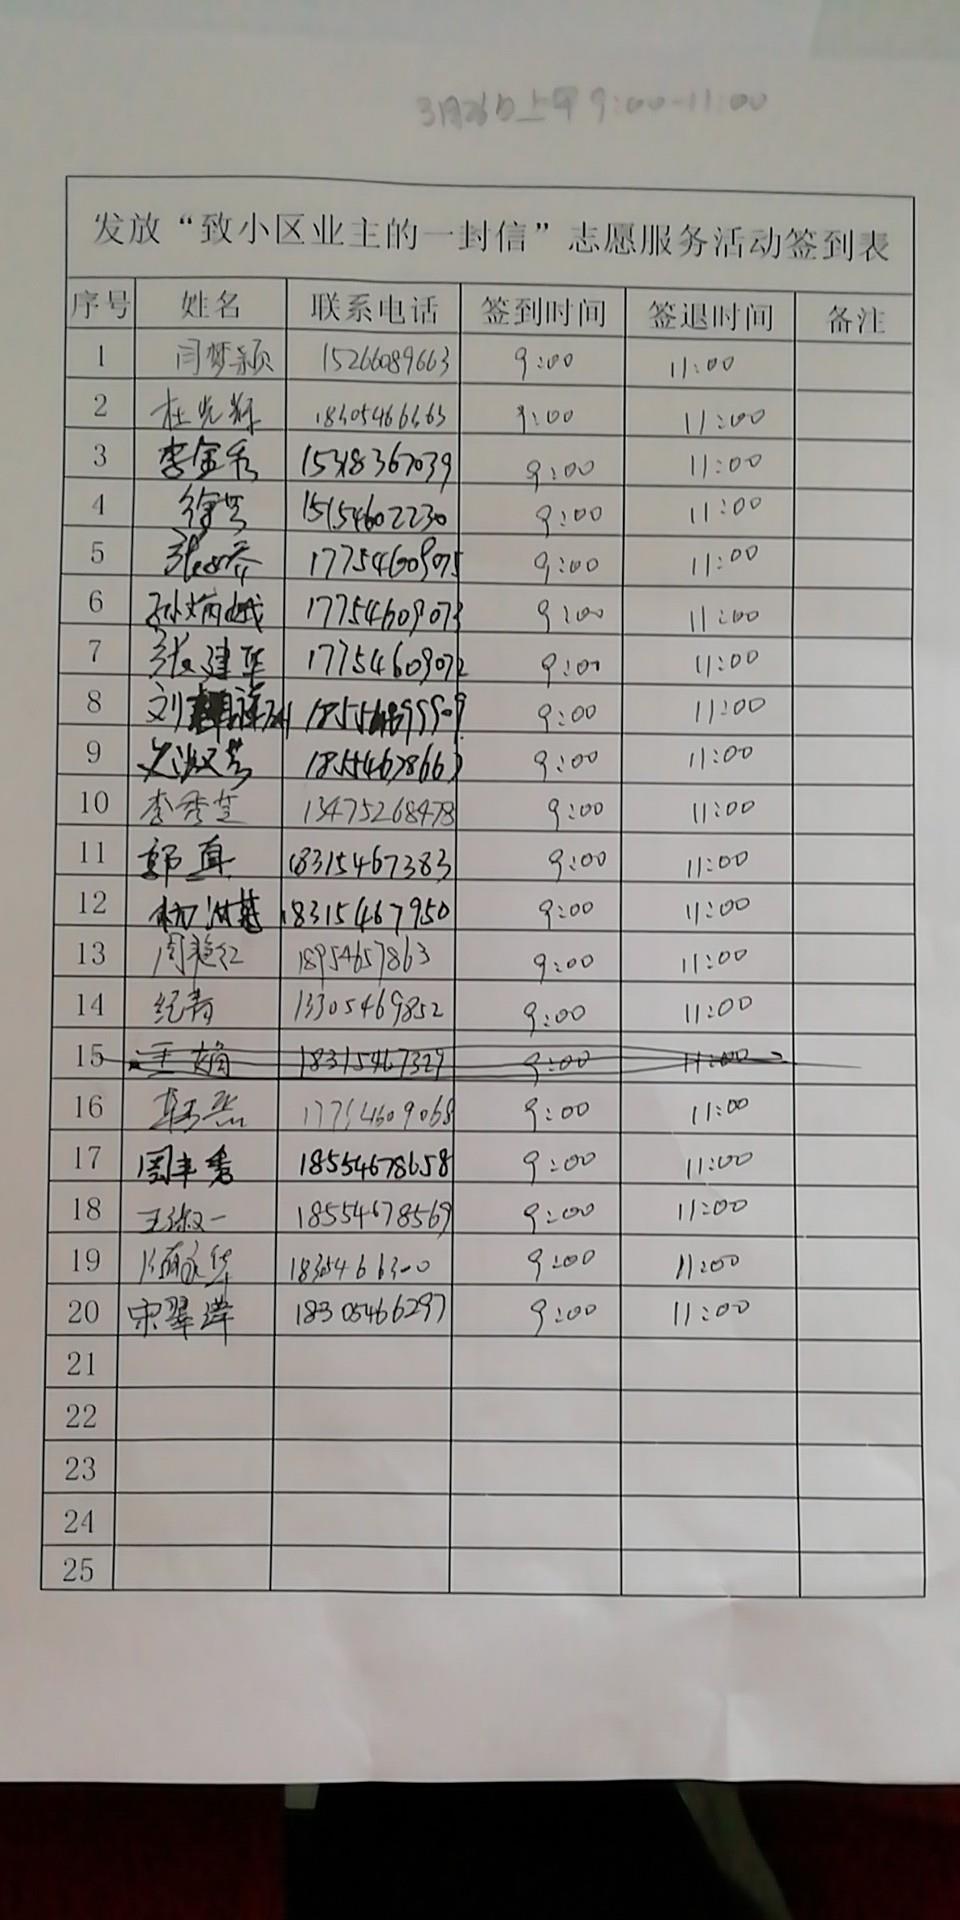 3月26日上午9:00-11:00
发放“致小区业主的一封信”志愿服务活动签到表
序号 姓名 联系电话 签到时间 签退时间 备注
1 闫梦颖 15266089663 9:00 11:00
2 杜光辉 9:00 11:00
3 李金秀 15318367039 9:00 11:00
4 徐芳 15154602230 9:00 11:00
5 17754609075 9:00 11:00
6 孙炳娥 17754609073 9:00 11:00
7 张建华 17754609072 9:00 11:00
8 刘 9:00 11:00
9 18554678663 9:00 11:00
10 李秀芝 13475268478 9:00 11:00
11 郭真 18315467383 9:00 11:00
12 18315467950 9:00 11:00
13 周艳红 18954657863 9:00 11:00
14 纪青 13305469852 9:00 11:00
15 王娟 18315467329 9:00 11:00
16 17754609068 9:00 11:00
17 周丰秀 18554678658 9:00 11:00
18 王淑一 18554678569 9:00 11:00
19 9:00 11:00
20 宋翠萍 18305466297 9:00 11:00
21
22
23
24
25